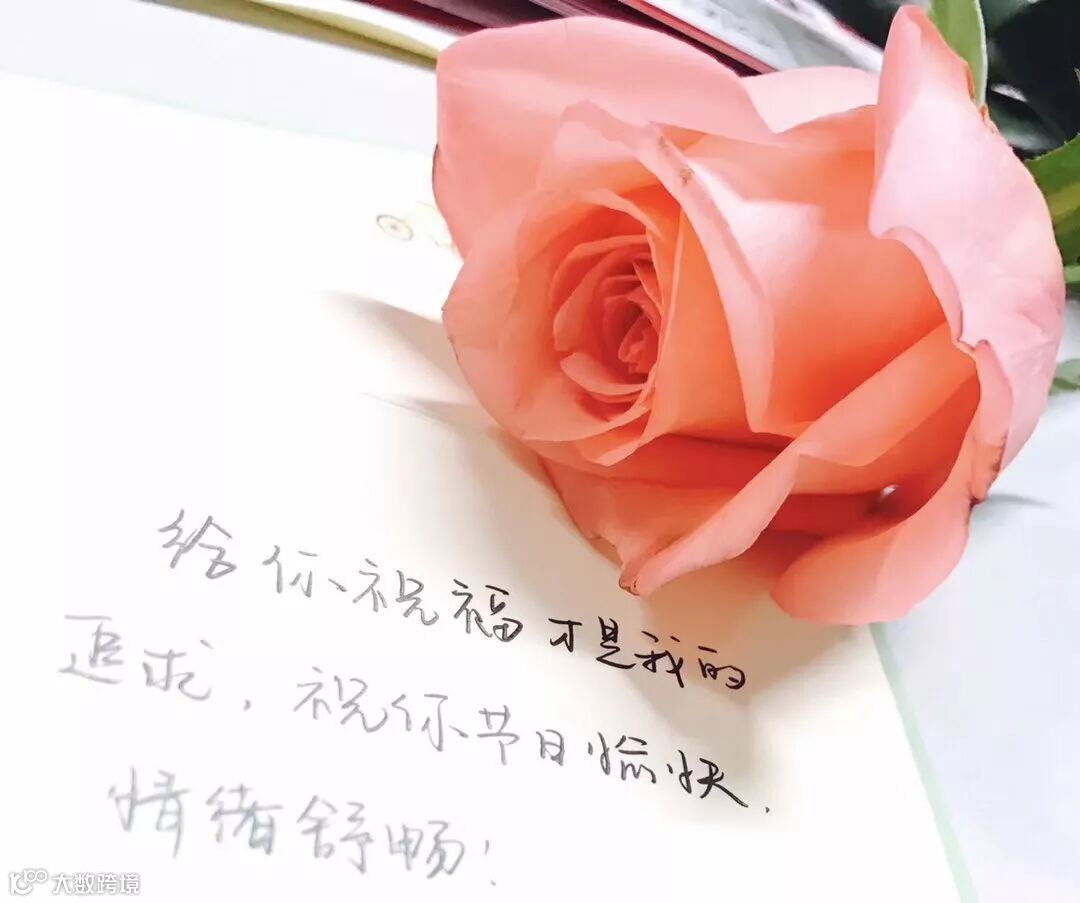 给你祝福才是我的
追求，祝你节日愉快，
情绪舒畅！
大数跨境